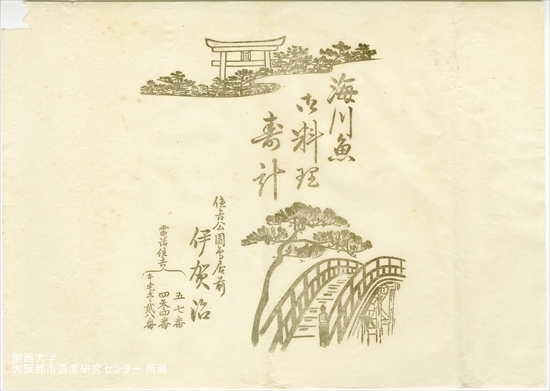 海川魚
御料理
寿計
住吉公園鳥居前
伊賀治
電話住吉
五七番
四〇四番
関西大学
大阪都市遺産研究センター 所蔵